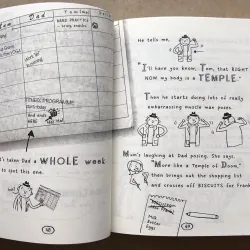 Dad
BAND PRACTICE
- bring snacks
FITNESS PROGRAMME
starts today
and ends
HERE
It's taken Dad a WHOLE week
to spot this one.
HA! HA!
48
He tells me,
"I'll have you know, Tom, that RIGHT
NOW my body is a TEMPLE."
Then he starts doing lots of really
embarrassing muscle man poses.
Mum's laughing at Dad posing. She says,
"More like a Temple of Doom,"
then brings out the shopping list
and crosses off BISCUITS for Frank
Milk
Butter
Eggs
49